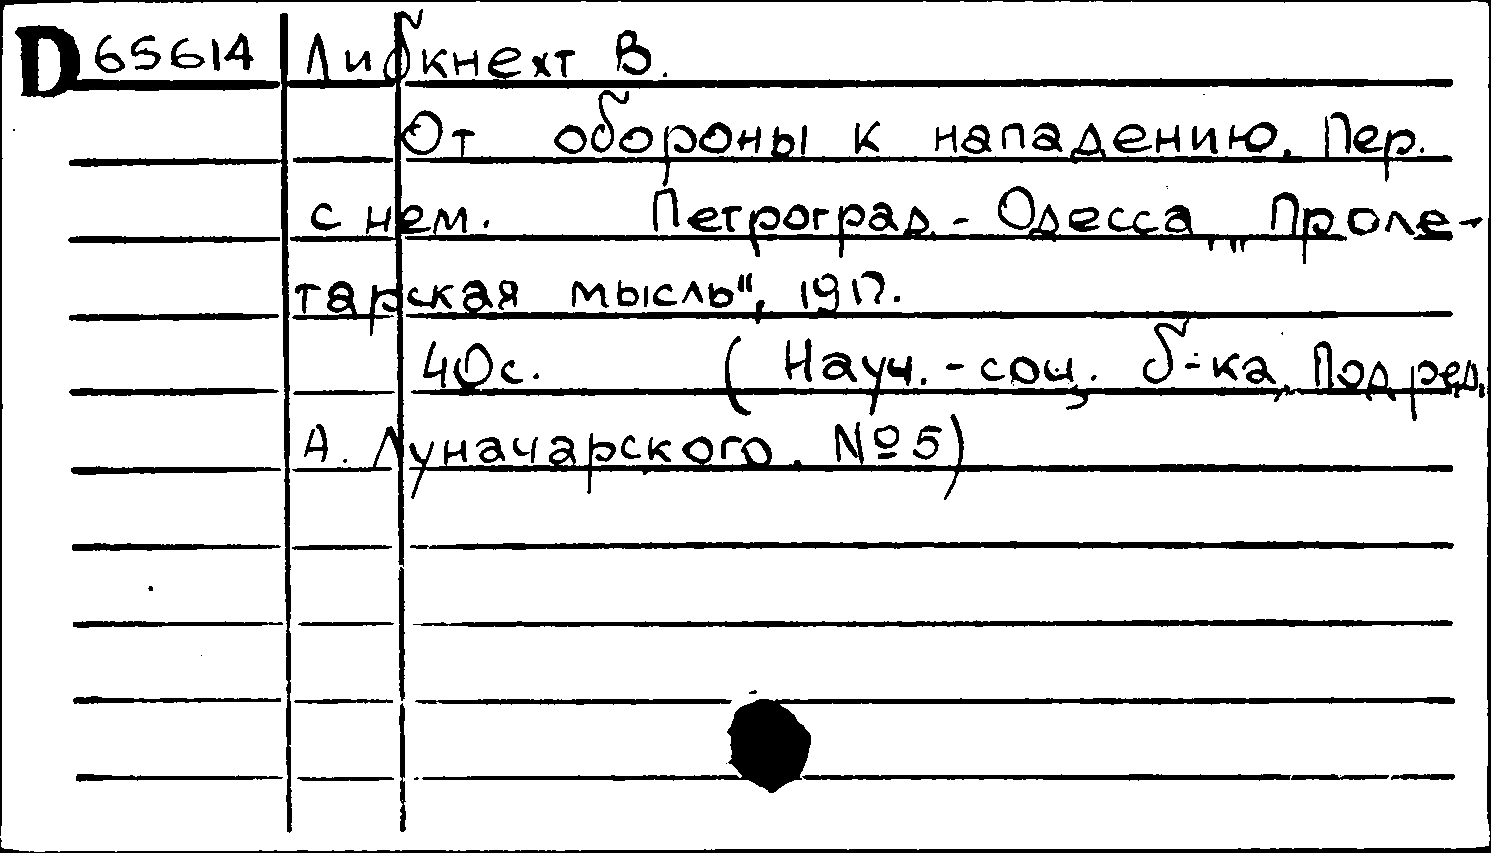 D 65614 Либкнехт В.
От обороны к нападению. Пер.
с нем. Петроград - Одесса, „Проле-
тарская мысль", 1917.
40с. (Науч.-соц. б-ка, Под ред.
А. Луначарского. №5)